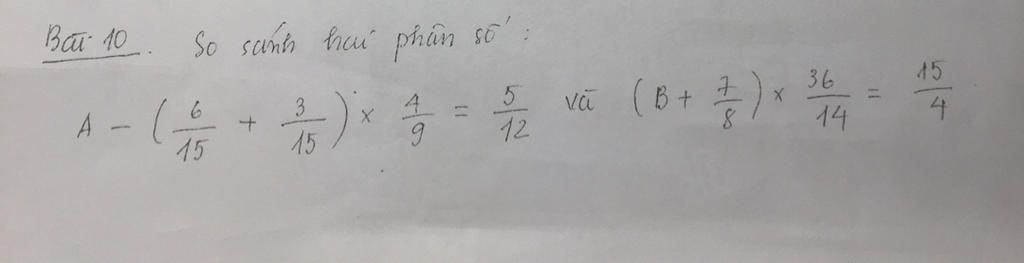 Bài 10. So sánh hai phân số:
A - (6/15 + 3/15) × 4/9 = 5/12 và (B + 7/8) × 36/14 = 15/4